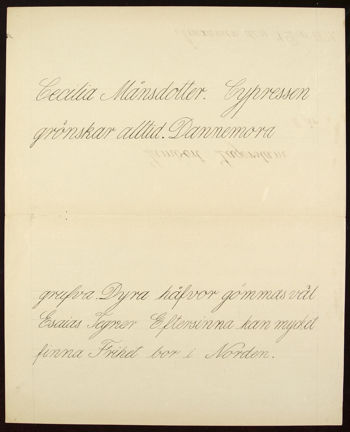 Cecilia Månsdotter. Cypressen
grönskar alltid. Dannemora
grufva. Dyra håfvor gömmas väl
Esaias Tegner Eftersinna kan mycket
finna Frihet bor i Norden.